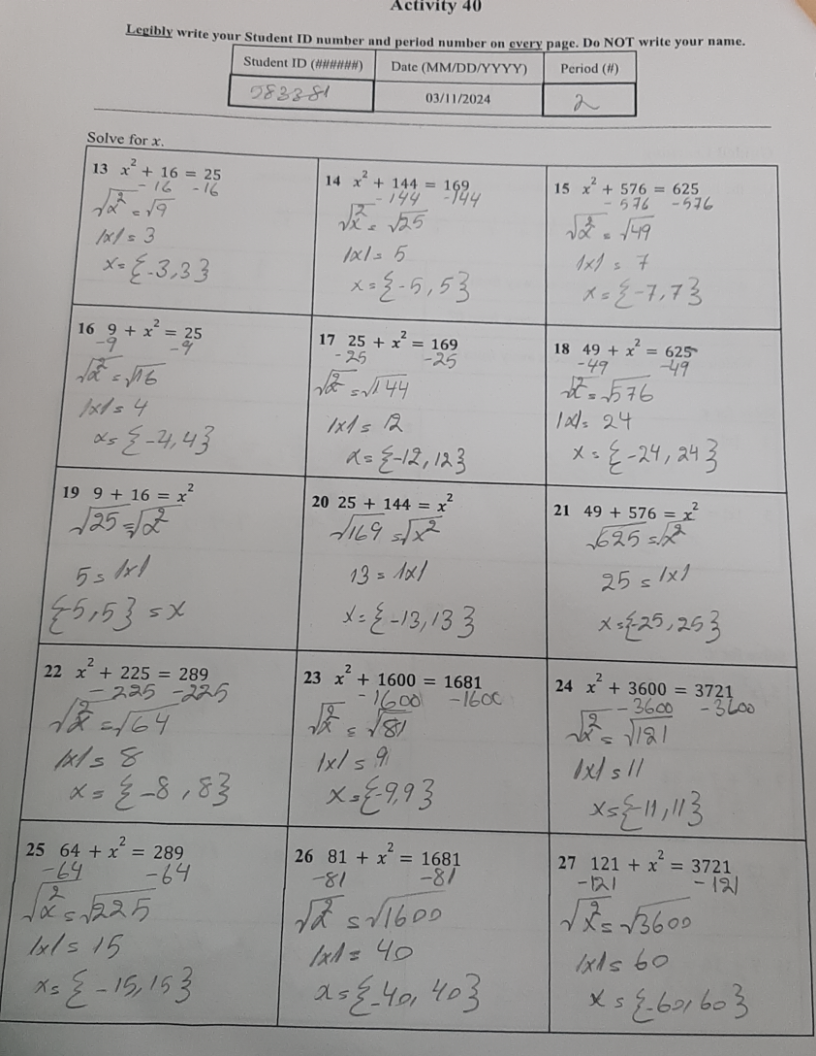 Activity 40
Legibly write your Student ID number and period number on every page. Do NOT write your name.
Student ID (######) Date (MM/DD/YYYY) Period (#)
583381 03/11/2024 2
Solve for x.
13 x² + 16 = 25
-16 -16
√x² = √9
|x| = 3
x = {-3,3}
14 x² + 144 = 169
-144 -144
√x² = √25
|x| = 5
x = {-5,5}
15 x² + 576 = 625
-576 -576
√x² = √49
|x| = 7
x = {-7,7}
16 9 + x² = 25
-9 -9
√x² = √16
|x| = 4
x = {-4,4}
17 25 + x² = 169
-25 -25
√x² = √144
|x| = 12
x = {-12,12}
18 49 + x² = 625
-49 -49
√x² = √576
|x| = 24
x = {-24,24}
19 9 + 16 = x²
√25 = √x²
5 = |x|
{-5,5} = x
20 25 + 144 = x²
√169 = √x²
13 = |x|
x = {-13,13}
21 49 + 576 = x²
√625 = √x²
25 = |x|
x = {-25,25}
22 x² + 225 = 289
-225 -225
√x² = √64
|x| = 8
x = {-8,8}
23 x² + 1600 = 1681
-1600 -1600
√x² = √81
|x| = 9
x = {-9,9}
24 x² + 3600 = 3721
-3600 -3600
√x² = √121
|x| = 11
x = {-11,11}
25 64 + x² = 289
-64 -64
√x² = √225
|x| = 15
x = {-15,15}
26 81 + x² = 1681
-81 -81
√x² = √1600
|x| = 40
x = {-40,40}
27 121 + x² = 3721
-121 -121
√x² = √3600
|x| = 60
x = {-60,60}